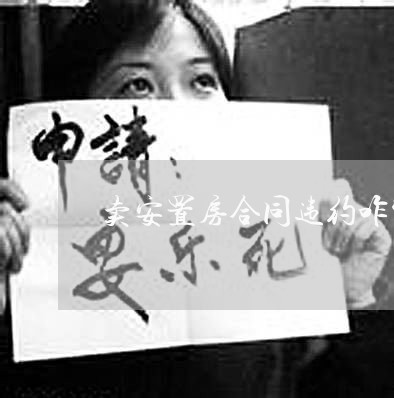 申請:
卖安置房合同违约咋
安乐死